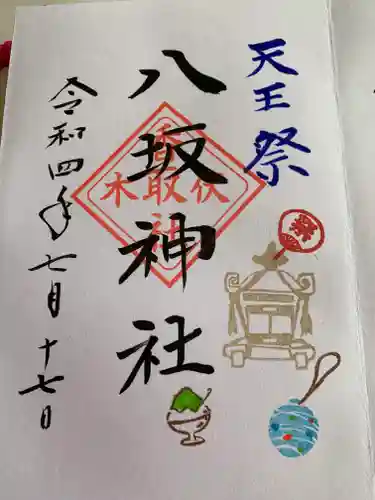 天王祭
八坂神社
香取
伏木
社
祭
令和四年七月十七日